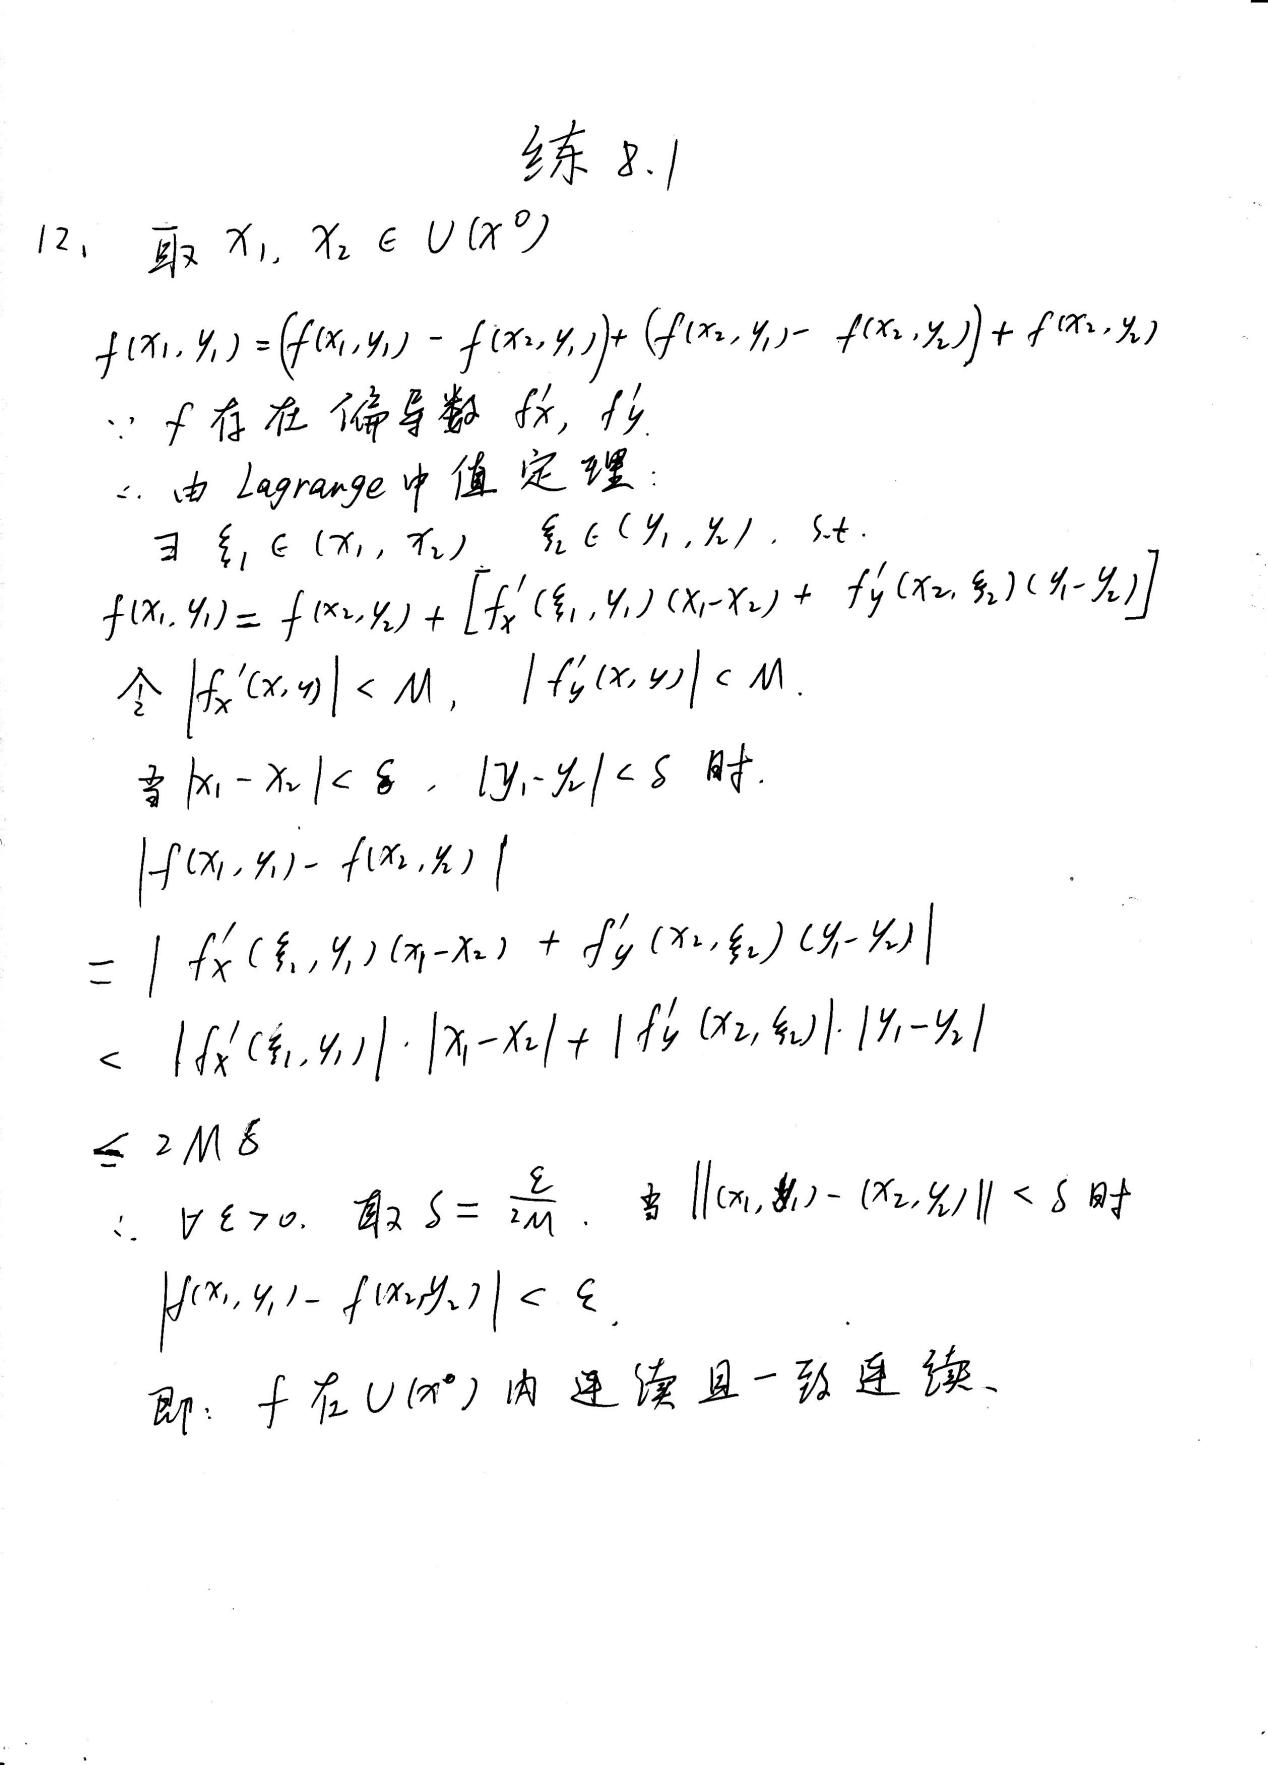 练 8.1
12. 取 x₁, x₂ ∈ U(x⁰)
f(x₁, y₁) = (f(x₁, y₁) - f(x₂, y₁)) + (f(x₂, y₁) - f(x₂, y₂)) + f(x₂, y₂)
∵ f 存在偏导数 f'x, f'y.
∴ 由 Lagrange 中值定理:
∃ ξ₁ ∈ (x₁, x₂) ξ₂ ∈ (y₁, y₂). s.t.
f(x₁, y₁) = f(x₂, y₂) + [fx'(ξ₁, y₁)(x₁-x₂) + fy'(x₂, ξ₂)(y₁-y₂)]
令 |fx'(x, y)| < M, |fy'(x, y)| < M.
当 |x₁ - x₂| < δ, |y₁ - y₂| < δ 时.
|f(x₁, y₁) - f(x₂, y₂)|
= |fx'(ξ₁, y₁)(x₁-x₂) + f'y(x₂, ξ₂)(y₁-y₂)|
< |fx'(ξ₁, y₁)|·|x₁-x₂| + |f'y(x₂, ξ₂)|·|y₁-y₂|
≤ 2Mδ
∴ ∀ ε > 0. 取 δ = ε/2M. 当 ||(x₁, y₁) - (x₂, y₂)|| < δ 时
|f(x₁, y₁) - f(x₂, y₂)| < ε.
即: f 在 U(x⁰) 内连续且一致连续.